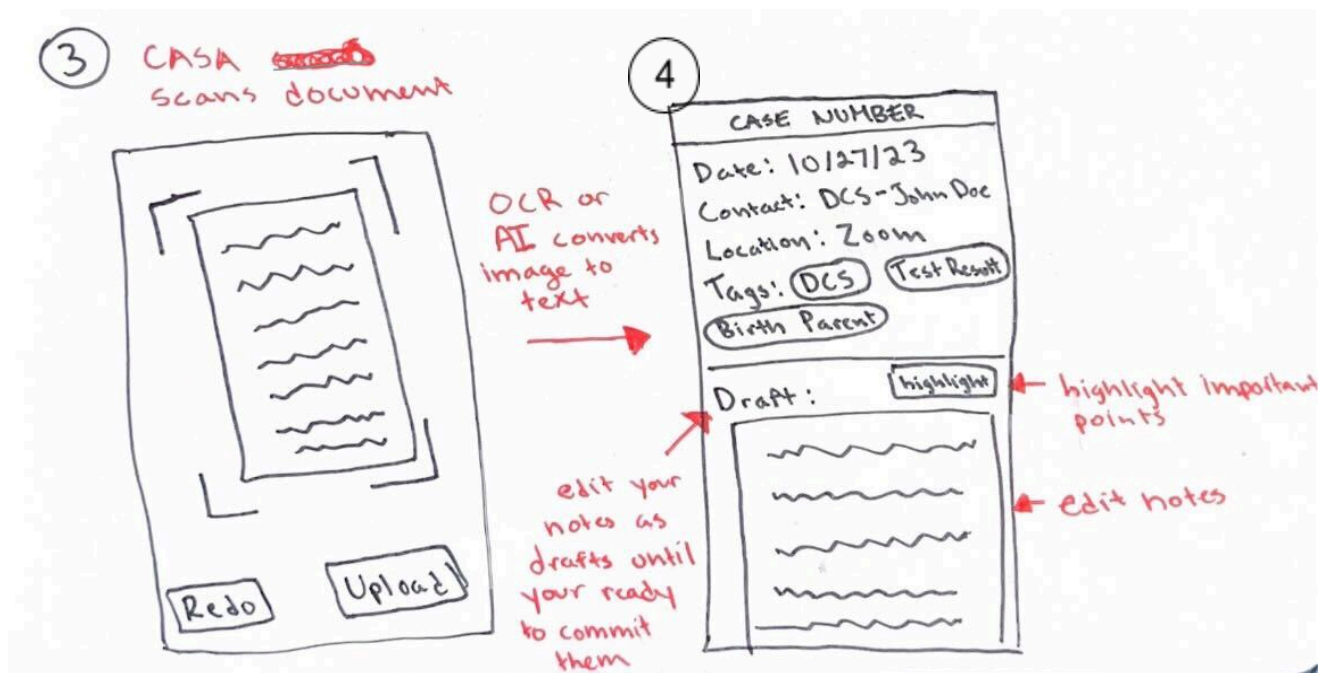 3
CASA
scans document
Redo
Upload
OCR or
AI converts
image to
text
4
CASE NUMBER
Date: 10/27/23
Contact: DCS-John Doe
Location: Zoom
Tags: DCS Test Result
Birth Parent
Draft: highlight
highlight important
points
edit notes
edit your
notes as
drafts until
your ready
to commit
them